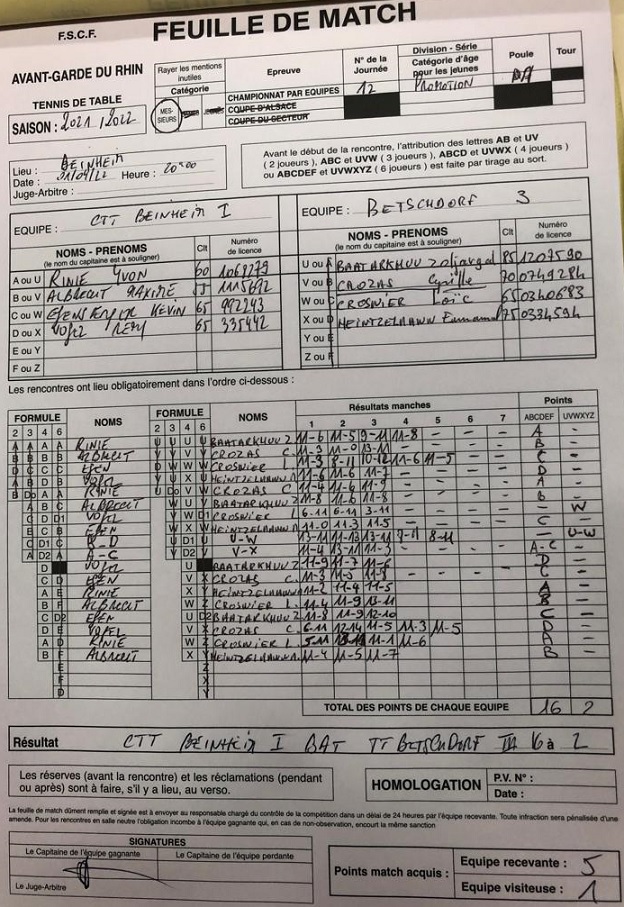 F.S.C.F.
FEUILLE DE MATCH
AVANT-GARDE DU RHIN
TENNIS DE TABLE
SAISON : 2021 / 2022
Rayer les mentions inutiles
Catégorie
MES-SIEURS
Epreuve
CHAMPIONNAT PAR EQUIPES
COUPE D'ALSACE
COUPE DU SECTEUR
N° de la Journée
12
Division - Série
Catégorie d'âge pour les jeunes
PROMOTION
Poule
Tour
Lieu : BEINHEIM
Date : 01/04/22 Heure : 20h00
Juge-Arbitre :
Avant le début de la rencontre, l'attribution des lettres AB et UV
( 2 joueurs ), ABC et UVW ( 3 joueurs ), ABCD et UVWX ( 4 joueurs )
ou ABCDEF et UVWXYZ ( 6 joueurs ) est faite par tirage au sort.
EQUIPE : CTT BEINHEIM I
NOMS - PRENOMS
(le nom du capitaine est à souligner)
Clt
Numéro de licence
A ou U RINIE YVON 60 1068779
B ou V ALBRECHT MAXIME
C ou W KEVIN 65 992243
D ou X REMY 65 335442
E ou Y
F ou Z
EQUIPE : BETSCHDORF 3
NOMS - PRENOMS
(le nom du capitaine est à souligner)
Clt
Numéro de licence
U ou A BAATARKHUU Zoljargal 85 1207590
V ou B CROZAS Cyrille 70 0749284
W ou C CROSNIER Loïc 65 0340683
X ou D HEINTZELMANN 75 0334594
Y ou E
Z ou F
Les rencontres ont lieu obligatoirement dans l'ordre ci-dessous :
FORMULE NOMS FORMULE NOMS Résultats manches Points
2 3 4 6 2 3 4 6 1 2 3 4 5 6 7 ABCDEF UVWXYZ
RINIE BAATARKHUU Z 11-6 11-5 9-11 11-8 A -
ALBRECHT CROZAS C. 11-3 11-0 13-11 B -
CROSNIER 11-9 8-11 10-12 11-6 11-5 C -
HEINTZELMANN 11-6 11-7 D -
RINIE CROZAS C 11-4 11-6 11-9 A -
ALBRECHT BAATARKHUU Z 11-8 11-6 11-8 B -
CROSNIER 6-11 6-11 3-11 - W
HEINTZELMANN 11-0 11-3 11-5 C -
B-D U-W 13-11 7-11 8-11 - U-W
A-C V-X 11-4 13-11 11-3 A-C -
BAATARKHUU Z 11-9 11-7 11-6 D -
CROZAS C. 11-3 11-5 11-8 C -
RINIE HEINTZELMANN 11-2 11-4 11-5 A -
ALBRECHT CROSNIER L. 11-4 11-9 13-11 B -
BAATARKHUU Z 11-8 11-9 12-10 C -
CROZAS C. 6-11 12-14 11-5 11-3 11-5 D -
RINIE CROSNIER L. 11-1 11-6 A -
ALBRECHT HEINTZELMANN 11-4 11-5 11-7 B -
TOTAL DES POINTS DE CHAQUE EQUIPE 16 2
Résultat CTT BEINHEIM I BAT TT BETSCHDORF III 16 à 2
Les réserves (avant la rencontre) et les réclamations (pendant
ou après) sont à faire, s'il y a lieu, au verso.
HOMOLOGATION
P.V. N° :
Date :
La feuille de match dûment remplie et signée est à envoyer au responsable chargé du contrôle de la compétition dans un délai de 24 heures par l'équipe recevante. Toute infraction sera pénalisée d'une
amende. Pour les rencontres en salle neutre l'obligation incombe à l'équipe gagnante qui, en cas de non-observation, encourt la même sanction
SIGNATURES
Le Capitaine de l'équipe gagnante
Le Capitaine de l'équipe perdante
Le Juge-Arbitre
Points match acquis :
Equipe recevante : 5
Equipe visiteuse : 1